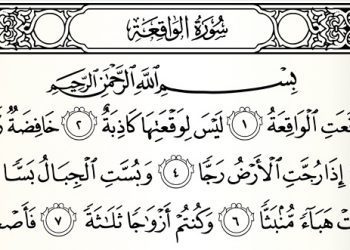 سُورَةُ الوَاقِعَةِ
بِسْمِ اللَّهِ الرَّحْمَٰنِ الرَّحِيمِ
الْوَاقِعَةُ ١ لَيْسَ لِوَقْعَتِهَا كَاذِبَةٌ ٢ خَافِضَةٌ
إِذَا رُجَّتِ الْأَرْضُ رَجًّا ٤ وَبُسَّتِ الْجِبَالُ بَسًّا
هَبَاءً مُّنۢبَثًّا ٦ وَكُنتُمْ أَزْوَاجًا ثَلَاثَةً ٧